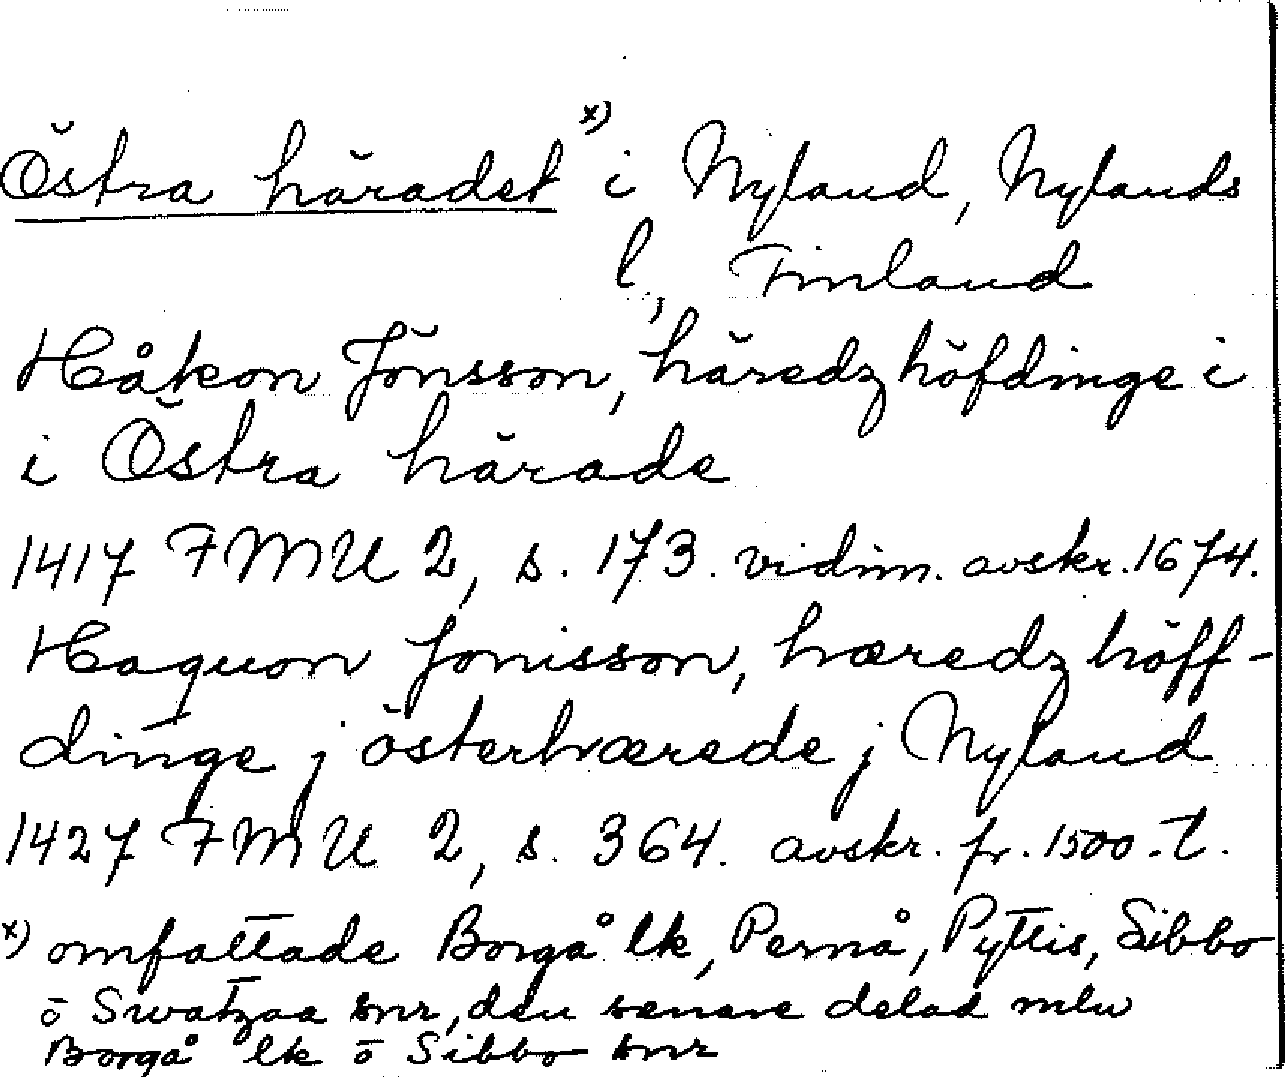 Östra häradet x) i Nyland, Nylands
l, Finland
Håkon Jönsson, häredz höfdinge i
i Östra härade
1417 FMU 2, s. 173. vidim. avskr. 1674.
Haquon Jonisson, hæredz höff-
dinge j österhværede j Nyland
1427 FMU 2, s. 364. avskr. fr. 1500-t.
x) omfattade Borgå lk, Pernå, Pyttis, Sibbo
o Swatzaa snr, den senare delad mln
Borgå lk o Sibbo snr